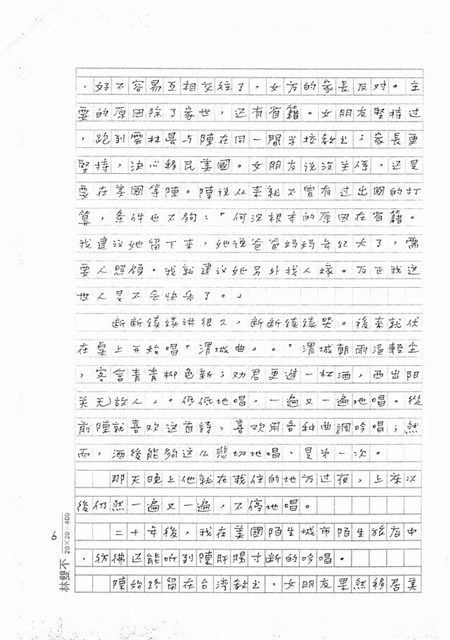 ，好不容易互相交往了，女方的家長反对。主
要的原因除了家世，还有省籍。女朋友堅持过
，跑到雲林县与陳在同一間学校教书；家長更
堅持，決心移民美國。女朋友说没关係，还是
要在美國等陳。陳说从来就不曾有过出國的打
算，条件也不夠：「何况根本的原因在省籍。
我建议她留下来，她说爸爸妈妈年纪大了，需
要人照顧。我就建议她另外找人嫁。反正我这
世人是不会快乐了。」
断断续续讲很久，断断续续哭。後来就伏
在桌上开始唱「渭城曲」。「渭城朝雨浥輕尘
，客舍青青柳色新；劝君更進一杯酒，西出阳
关无故人」。低低地唱，一遍又一遍地唱。從
前陳就喜欢这首詩，喜欢用各种曲調吟唱；然
而，酒後能夠这么悲切地唱，是第一次。
那天晚上他就在我住的地方过夜，上床以
後仍然一遍又一遍，不停地唱。
二十年後，我在美國陌生城市陌生旅店中
，彷彿还能听到陳肝腸寸断的吟唱。
陳始終留在台湾教书，女朋友果然移居美
6
林雙不
20×20=400